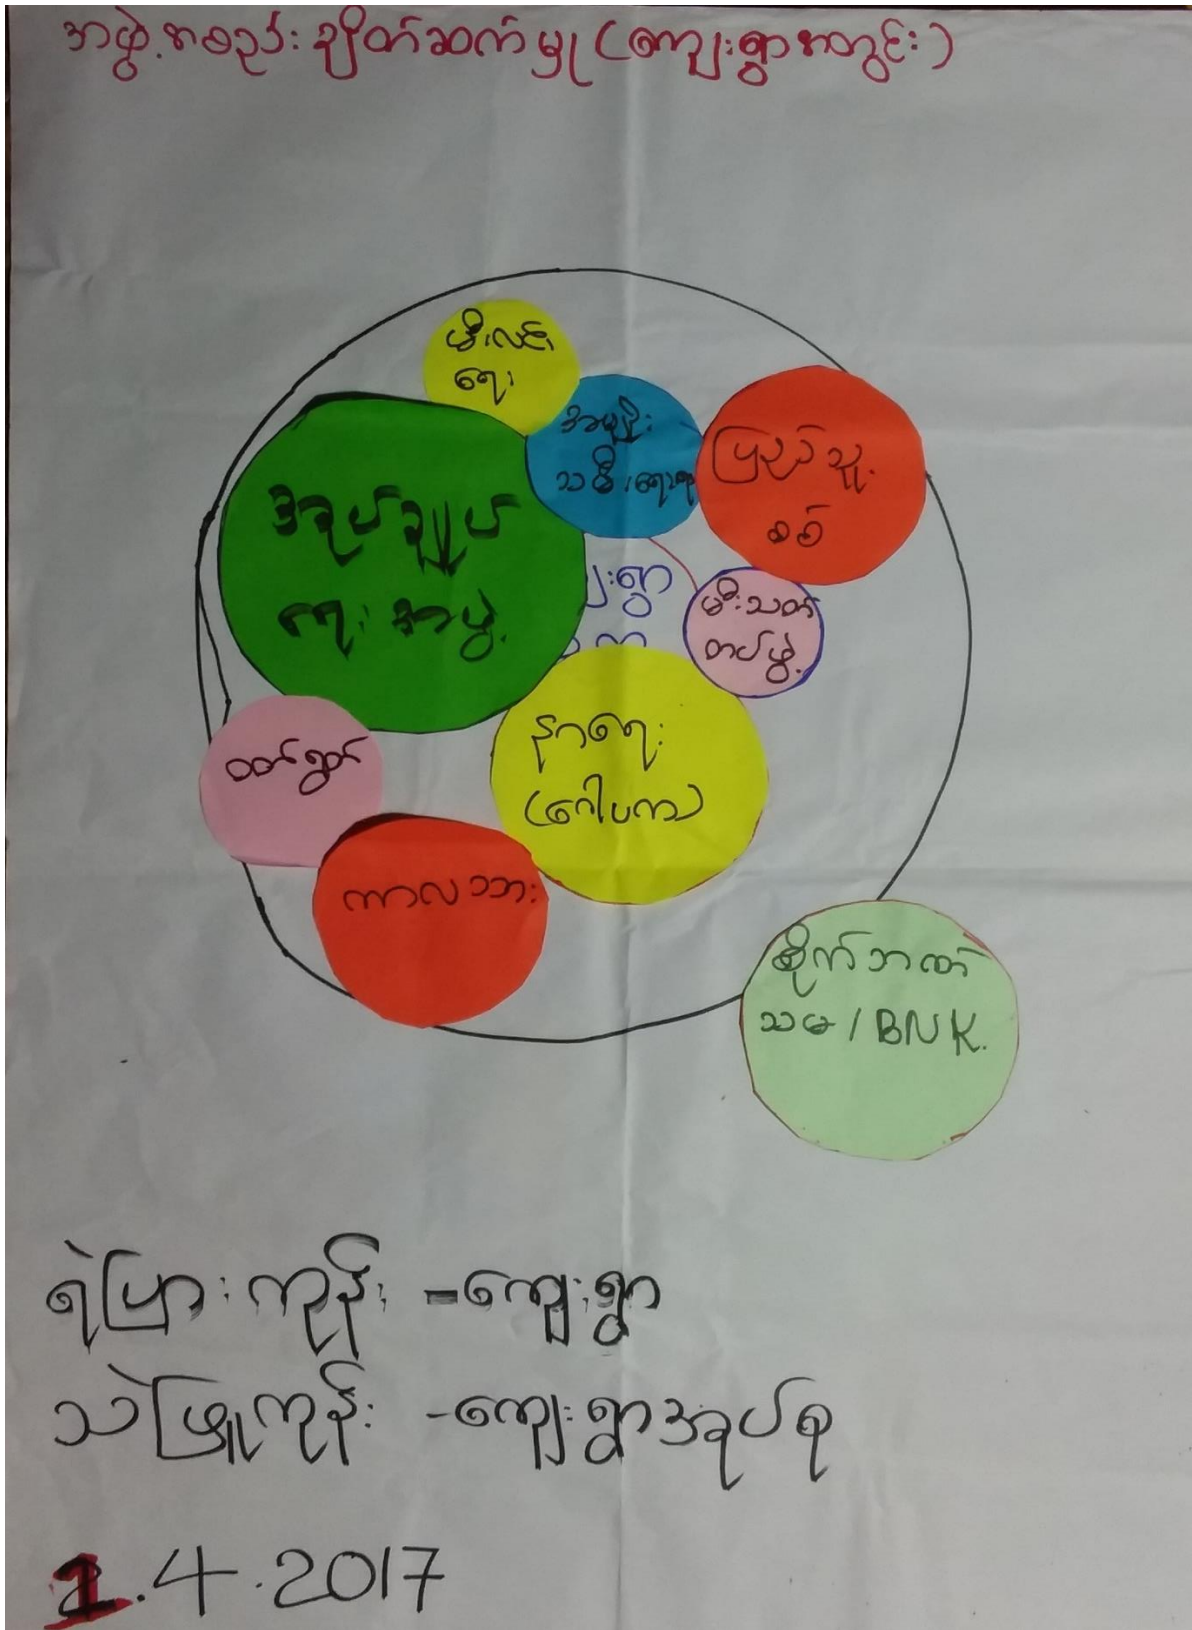 အဖွဲ့အစည်းချိတ်ဆက်မှု (ကျေးရွာအတွင်း)
မီးလင်း
ရေး
အမျိုး
သမီးရေးရာ
ပြည်သူ့
စစ်
အုပ်ချုပ်
ရေးအဖွဲ့
ကျေးရွာ
မီးသတ်
တပ်ဖွဲ့
နာရေး
(ဂေါပက)
ဝတ်ရွတ်
ကာလသား
စိုက်ဘဏ်
သမ / BNK.
ရဲပြားကုန်း - ကျေးရွာ
သဲဖြူကုန်း - ကျေးရွာအုပ်စု
1.4.2017